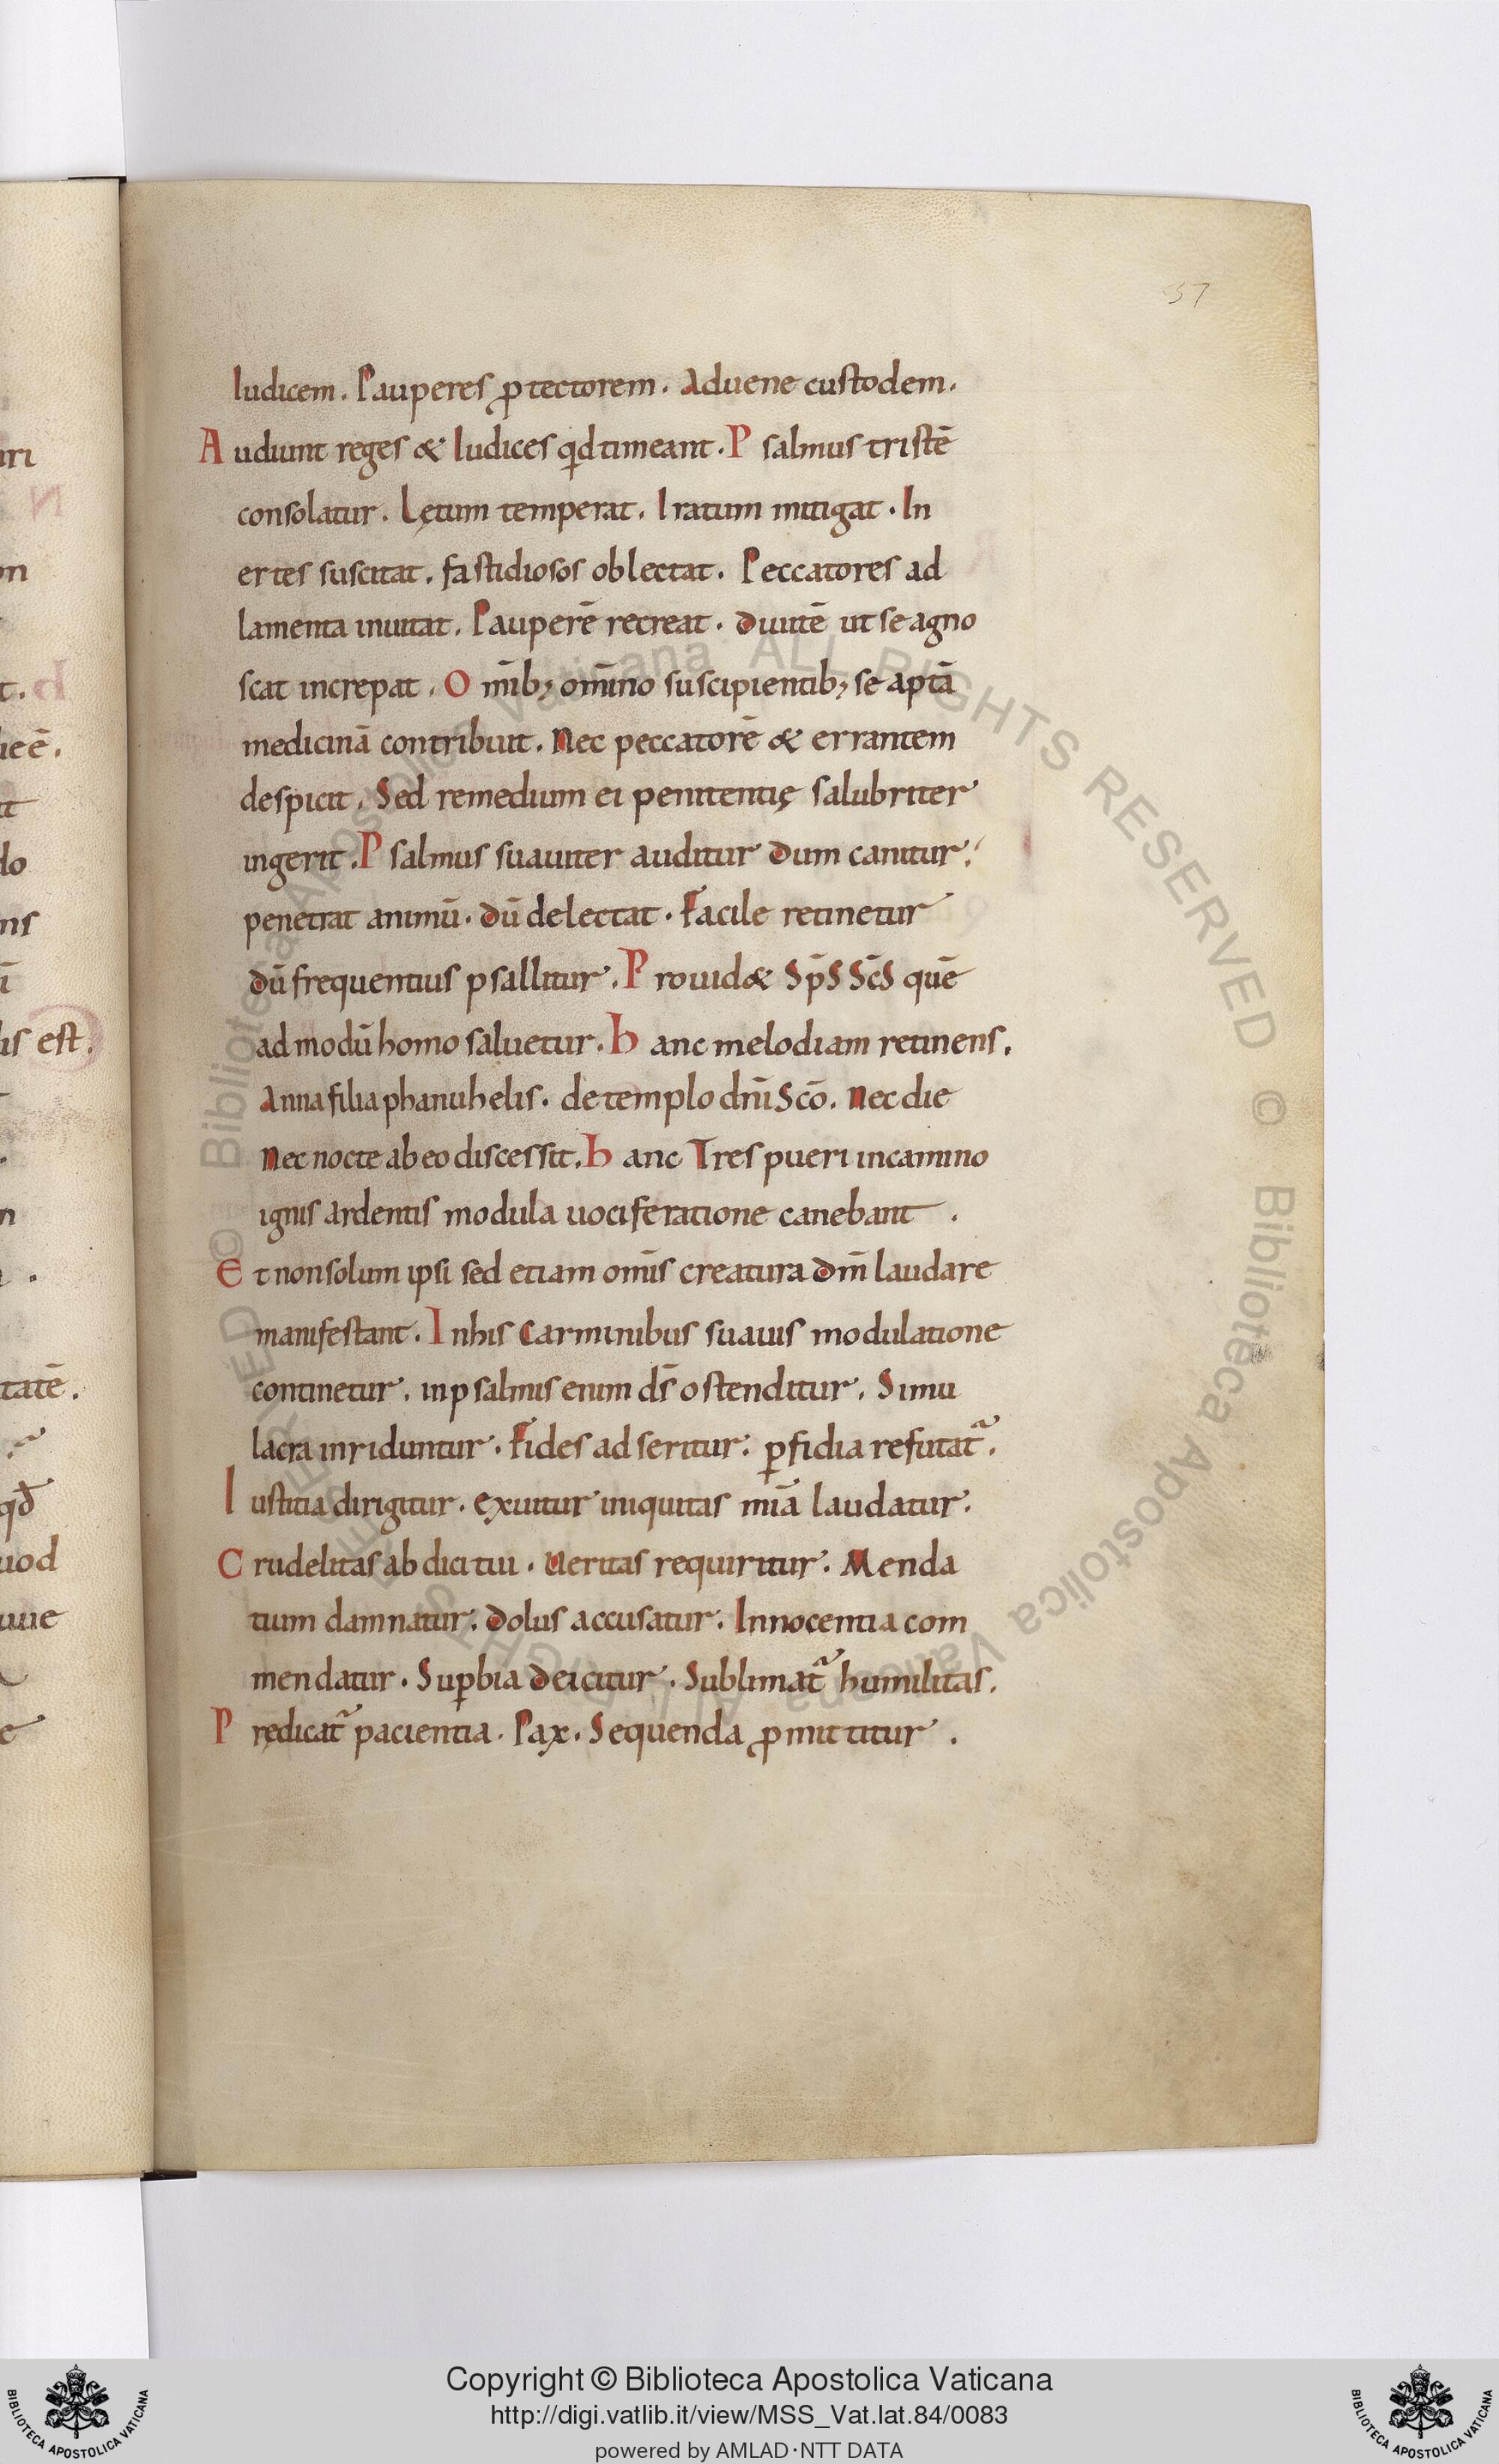 37
Iudicem. Pauperes ꝓtectorem. Aduene custodem.
Audiunt reges & Iudices qd timeant. Psalmus tristē
consolatur. Lętum temperat. Iratum mitigat. In
ertes suscitat. fastidiosos oblectat. Peccatores ad
lamenta inuitat. Pauperē recreat. diuitē ut se agno
scat increpat. Om̄ib; om̄ino suscipientib; se aptā
medicinā contribuit. Nec peccatorē & errantem
despicit. Sed remedium ei penitentię salubriter
ingerit. Psalmus suauiter auditur dum canitur.
penetrat animū. dū delectat. Facile retinetur
dū frequentius psallitur. Prouid& Sp̄s Sc̄s quē
ad modū homo saluetur. hanc melodiam retinens.
Anna filia phanuhelis. de templo dn̄i Scō. Nec die
Nec nocte ab eo discessit. hanc Tres pueri in camino
ignis Ardentis modula uociferatione canebant.
Et non solum ipsi sed etiam om̄is creatura dn̄m laudare
manifestant. In his Carminibus suauis modulatione
continetur. in psalmis enim ds̄ ostenditur. Simu
lacra inriduntur. Fides adseritur. ꝑfidia refutat᷑.
Iustitia dirigitur. exuitur iniquitas mīa laudatur.
Crudelitas abdicitui. Ueritas requiritur. Menda
tium damnatur. dolus accusatur. Innocentia com
mendatur. Suꝑbia deicitur. Sublimat᷑ humilitas.
Prędicat᷑ pacientia. Pax. Sequenda ꝓmittitur.
© Biblioteca Apostolica Vaticana ALL RIGHTS RESERVED © Biblioteca Apostolica Vaticana ALL RIGHTS RESERVED
BIBLIOTECA APOSTOLICA VATICANA
Copyright © Biblioteca Apostolica Vaticana
http://digi.vatlib.it/view/MSS_Vat.lat.84/0083
powered by AMLAD·NTT DATA
BIBLIOTECA APOSTOLICA VATICANA